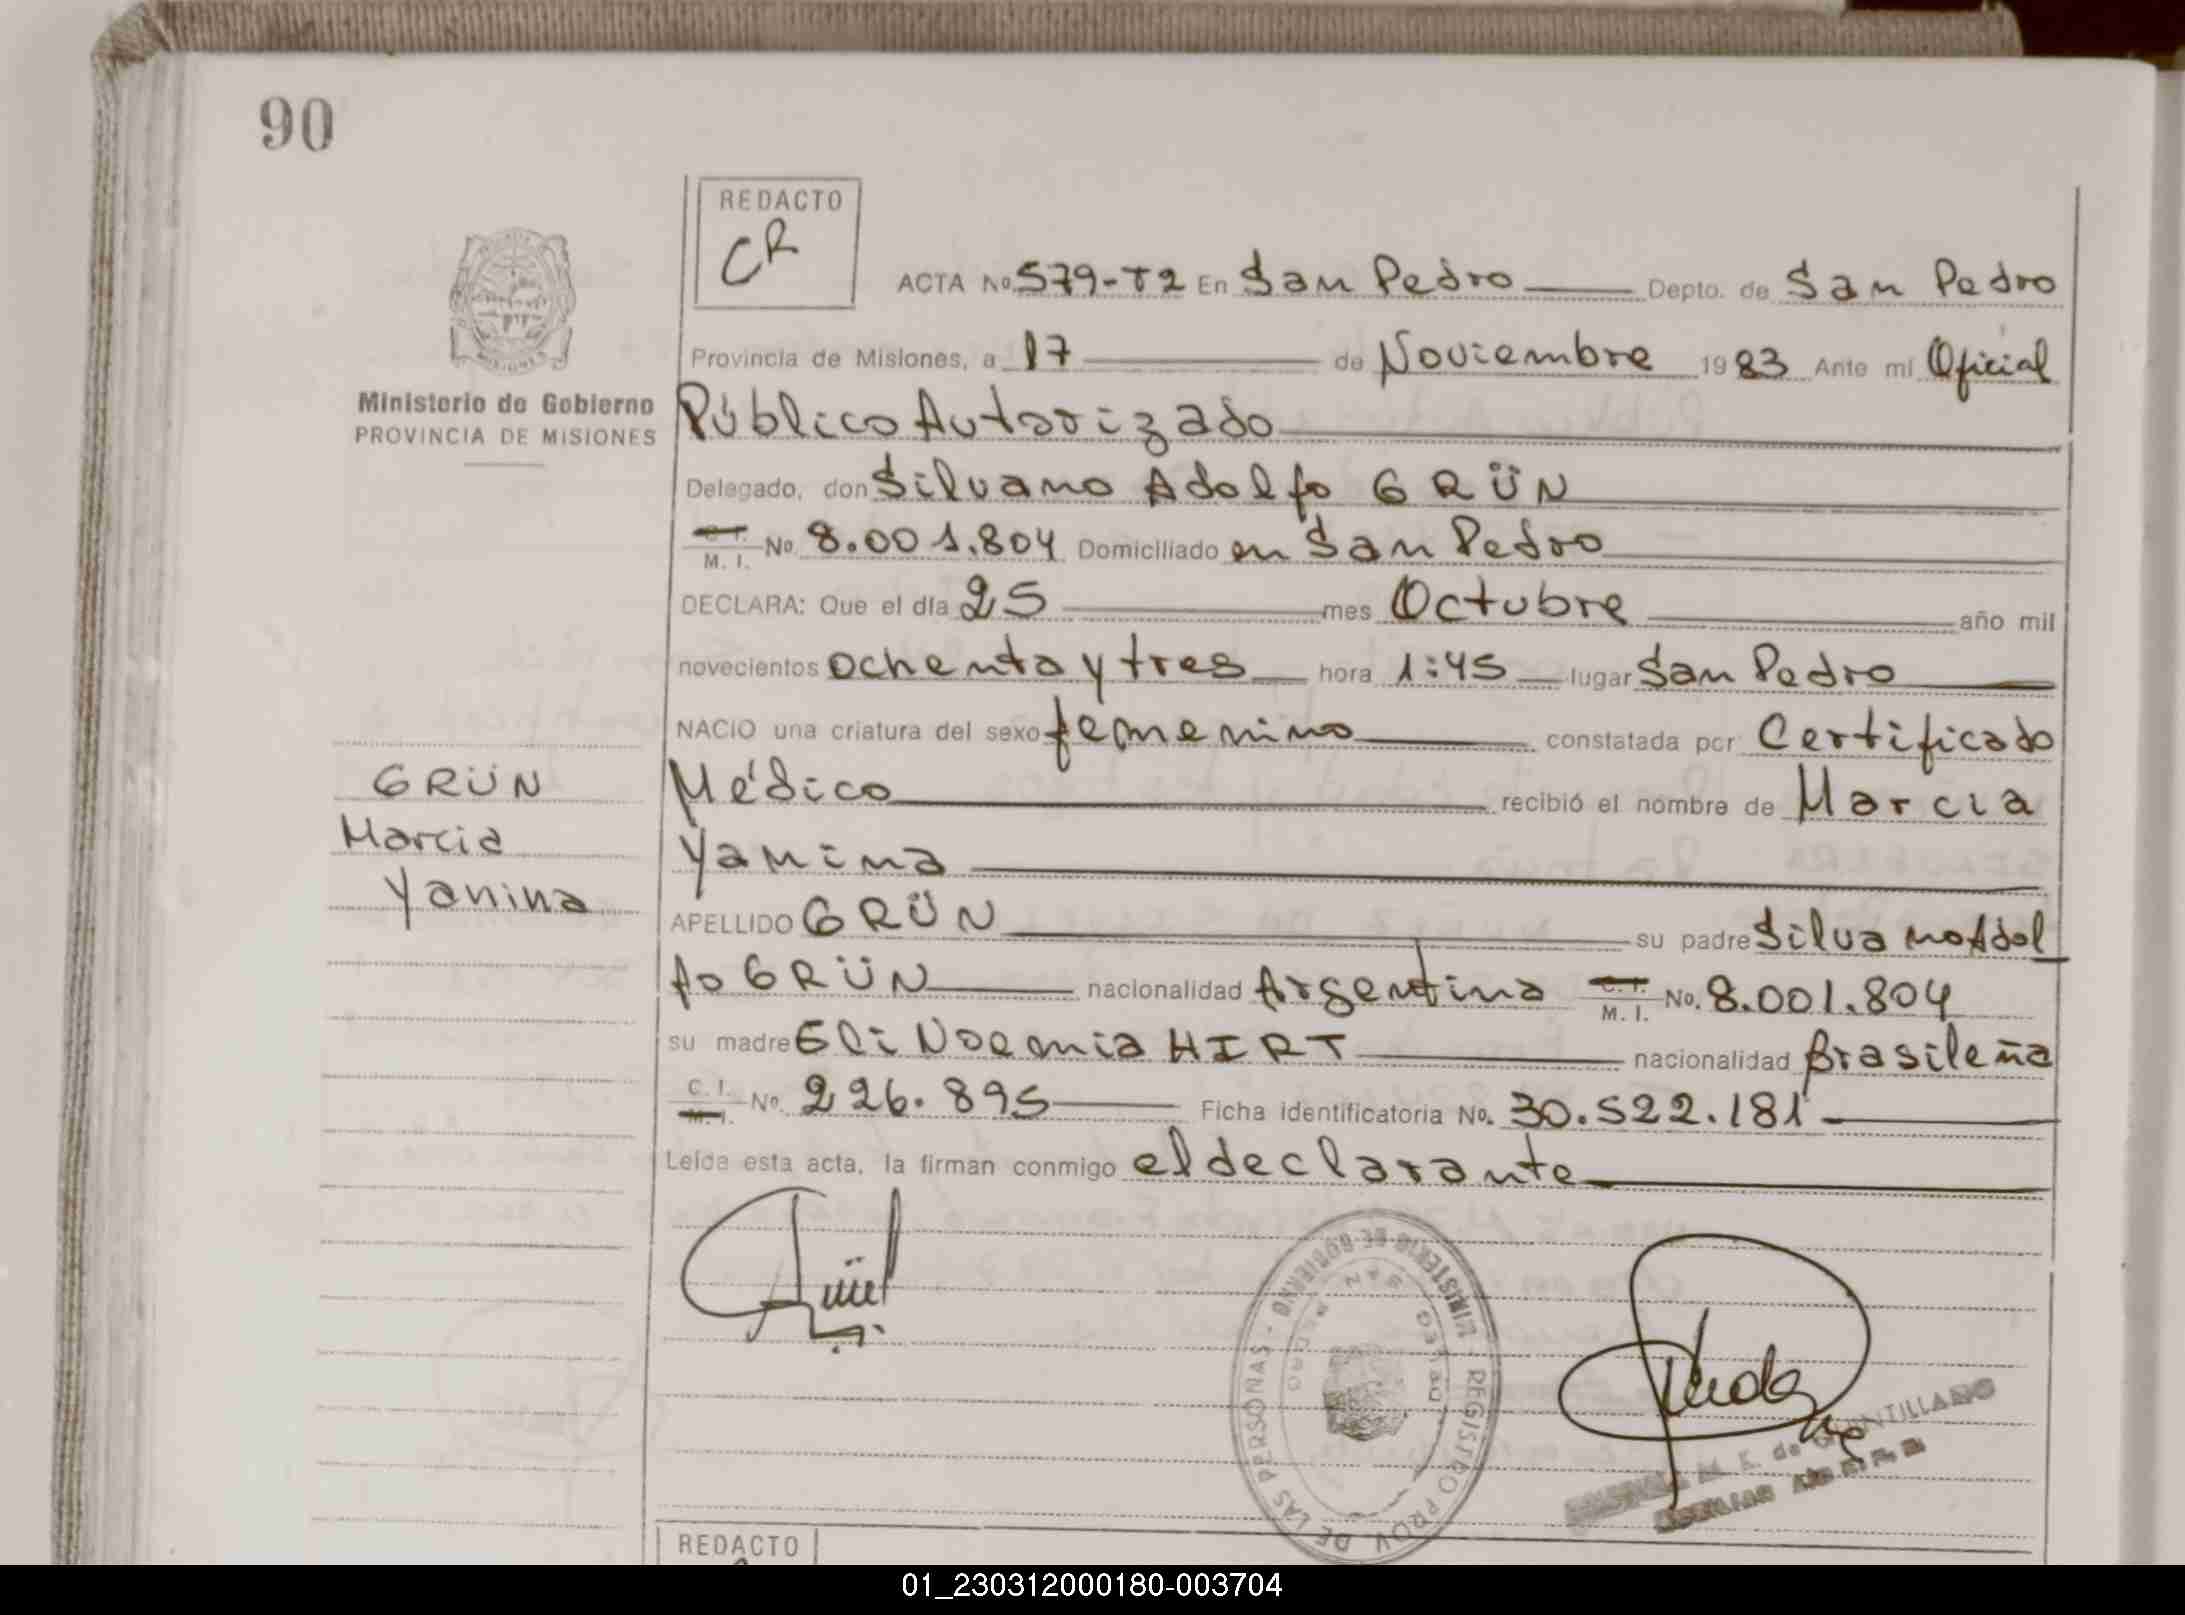 90
REDACTO
CR
ACTA No. 579-T2 En San Pedro Depto. de San Pedro
Provincia de Misiones, a 17 de Noviembre 1983 Ante mi Oficial
Ministerio de Gobierno
PROVINCIA DE MISIONES
Público Autorizado
Delegado, don Silvano Adolfo GRÜN
C. I.
M. I. No. 8.001.804 Domiciliado en San Pedro
DECLARA: Que el día 25 mes Octubre año mil
novecientos ochenta y tres hora 1:45 lugar San Pedro
NACIO una criatura del sexo femenino constatada por Certificado
Médico recibió el nombre de Marcia
Yanina
GRÜN
Marcia
Yanina
APELLIDO GRÜN su padre Silvano Adol
fo GRÜN nacionalidad Argentina C. I. M. I. No. 8.001.804
su madre Eli Noemia HIRT nacionalidad Brasileña
C. I.
M. I. No. 226.895 Ficha identificatoria No. 30.522.181
Leída esta acta, la firman conmigo el declarante
MINISTERIO DE GOBIERNO - REGISTRO PROV. DE LAS PERSONAS -
SAN PEDRO
M. E. de QUINTILLANO
REDACTO
01_230312000180-003704